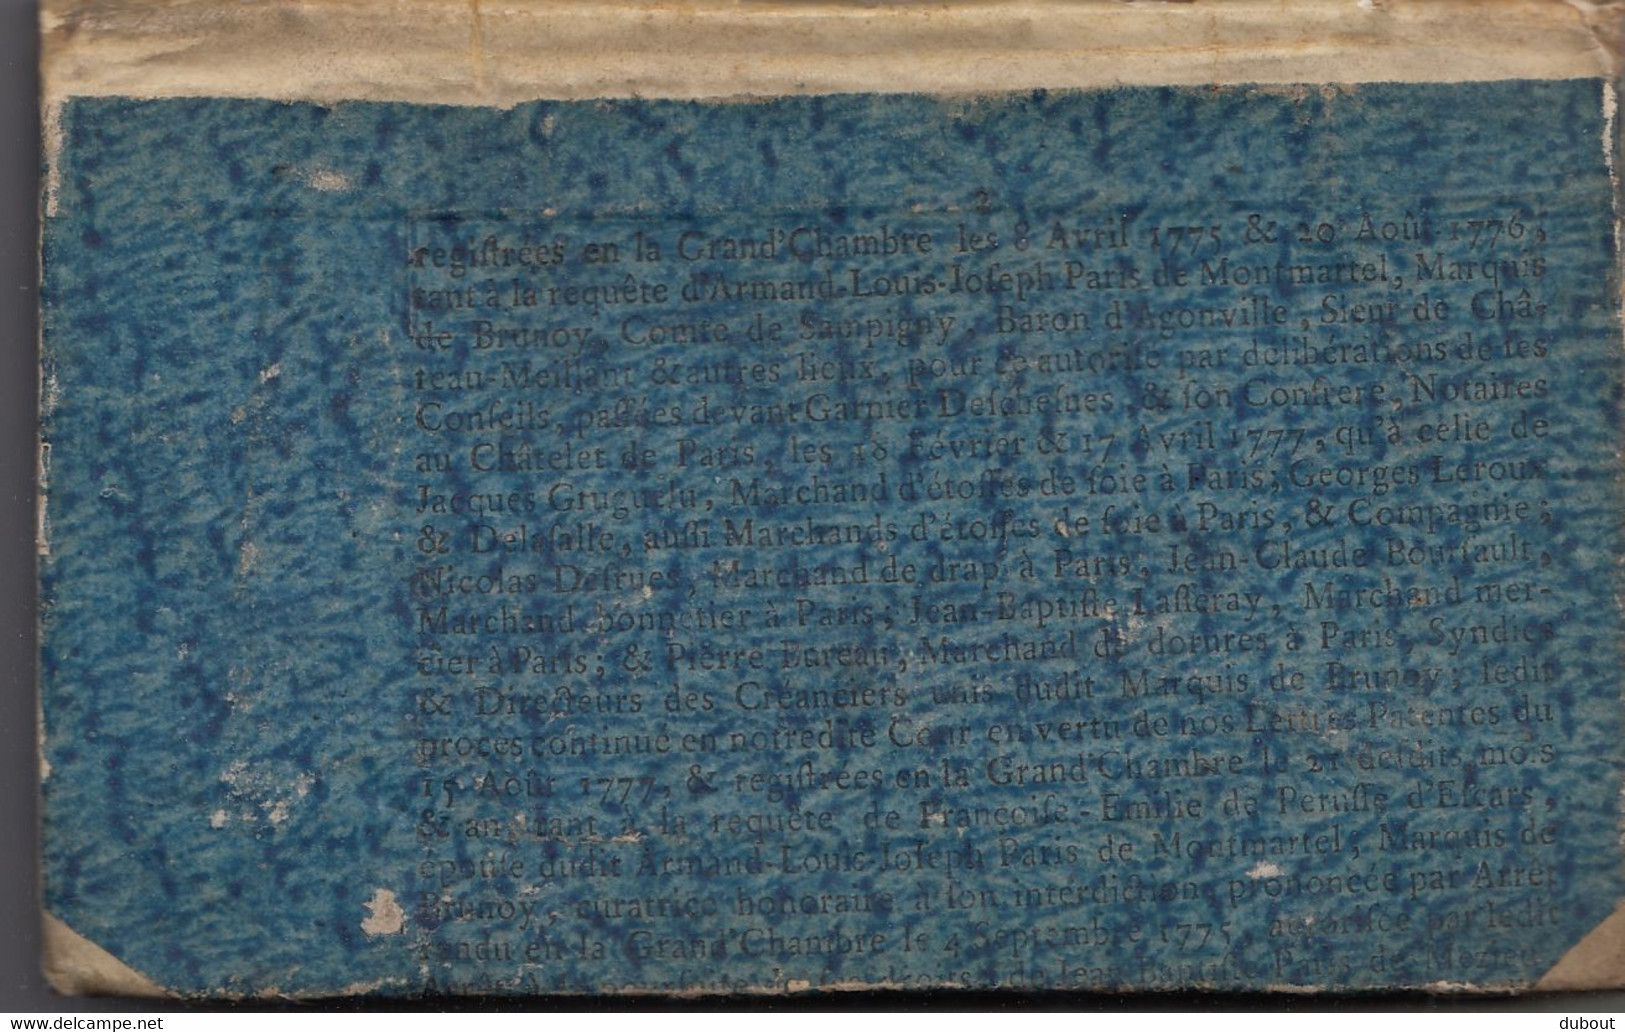 2
regiſtrées en la Grand'Chambre les 8 Avril 1775 & 20 Août 1776,
tant à la requête d'Armand-Louis-Joſeph Paris de Montmartel, Marquis
de Brunoy, Comte de Sampigny, Baron d'Agonville, Sieur de Châ-
teau-Meillant & autres lieux, pour ce autoriſé par délibérations de ſes
Conſeils, paſſées devant Garnier Deſcheſnes, & ſon Confrere, Notaires
au Châtelet de Paris, les 18 Février & 17 Avril 1777, qu'à celle de
Jacques Gruguelu, Marchand d'étoffes de ſoie à Paris; Georges Leroux
& Delaſalle, auſſi Marchands d'étoffes de ſoie à Paris, & Compagnie;
Nicolas Deſrues, Marchand de drap à Paris, Jean-Claude Bourſault,
Marchand bonnetier à Paris; Jean-Baptiſte Laſſeray, Marchand mer-
cier à Paris; & Pierre Bureau, Marchand de dorures à Paris, Syndics
& Directeurs des Créanciers unis dudit Marquis de Brunoy; ledit
procès continué en notredite Cour en vertu de nos Lettres Patentes du
15 Août 1777, & regiſtrées en la Grand'Chambre le 21 deſdits mois
& an, tant à la requête de Françoiſe-Emilie de Peruſſe d'Eſcars,
épouſe dudit Armand-Louis-Joſeph Paris de Montmartel, Marquis de
Brunoy, curatrice honoraire à ſon interdiction, prononcée par Arrêt
rendu en la Grand'Chambre le 4 Septembre 1775, autoriſée par ledit
Arrêt à la pourſuite de ſes droits, de Jean-Baptiſte Paris de Mezieu,
dubout